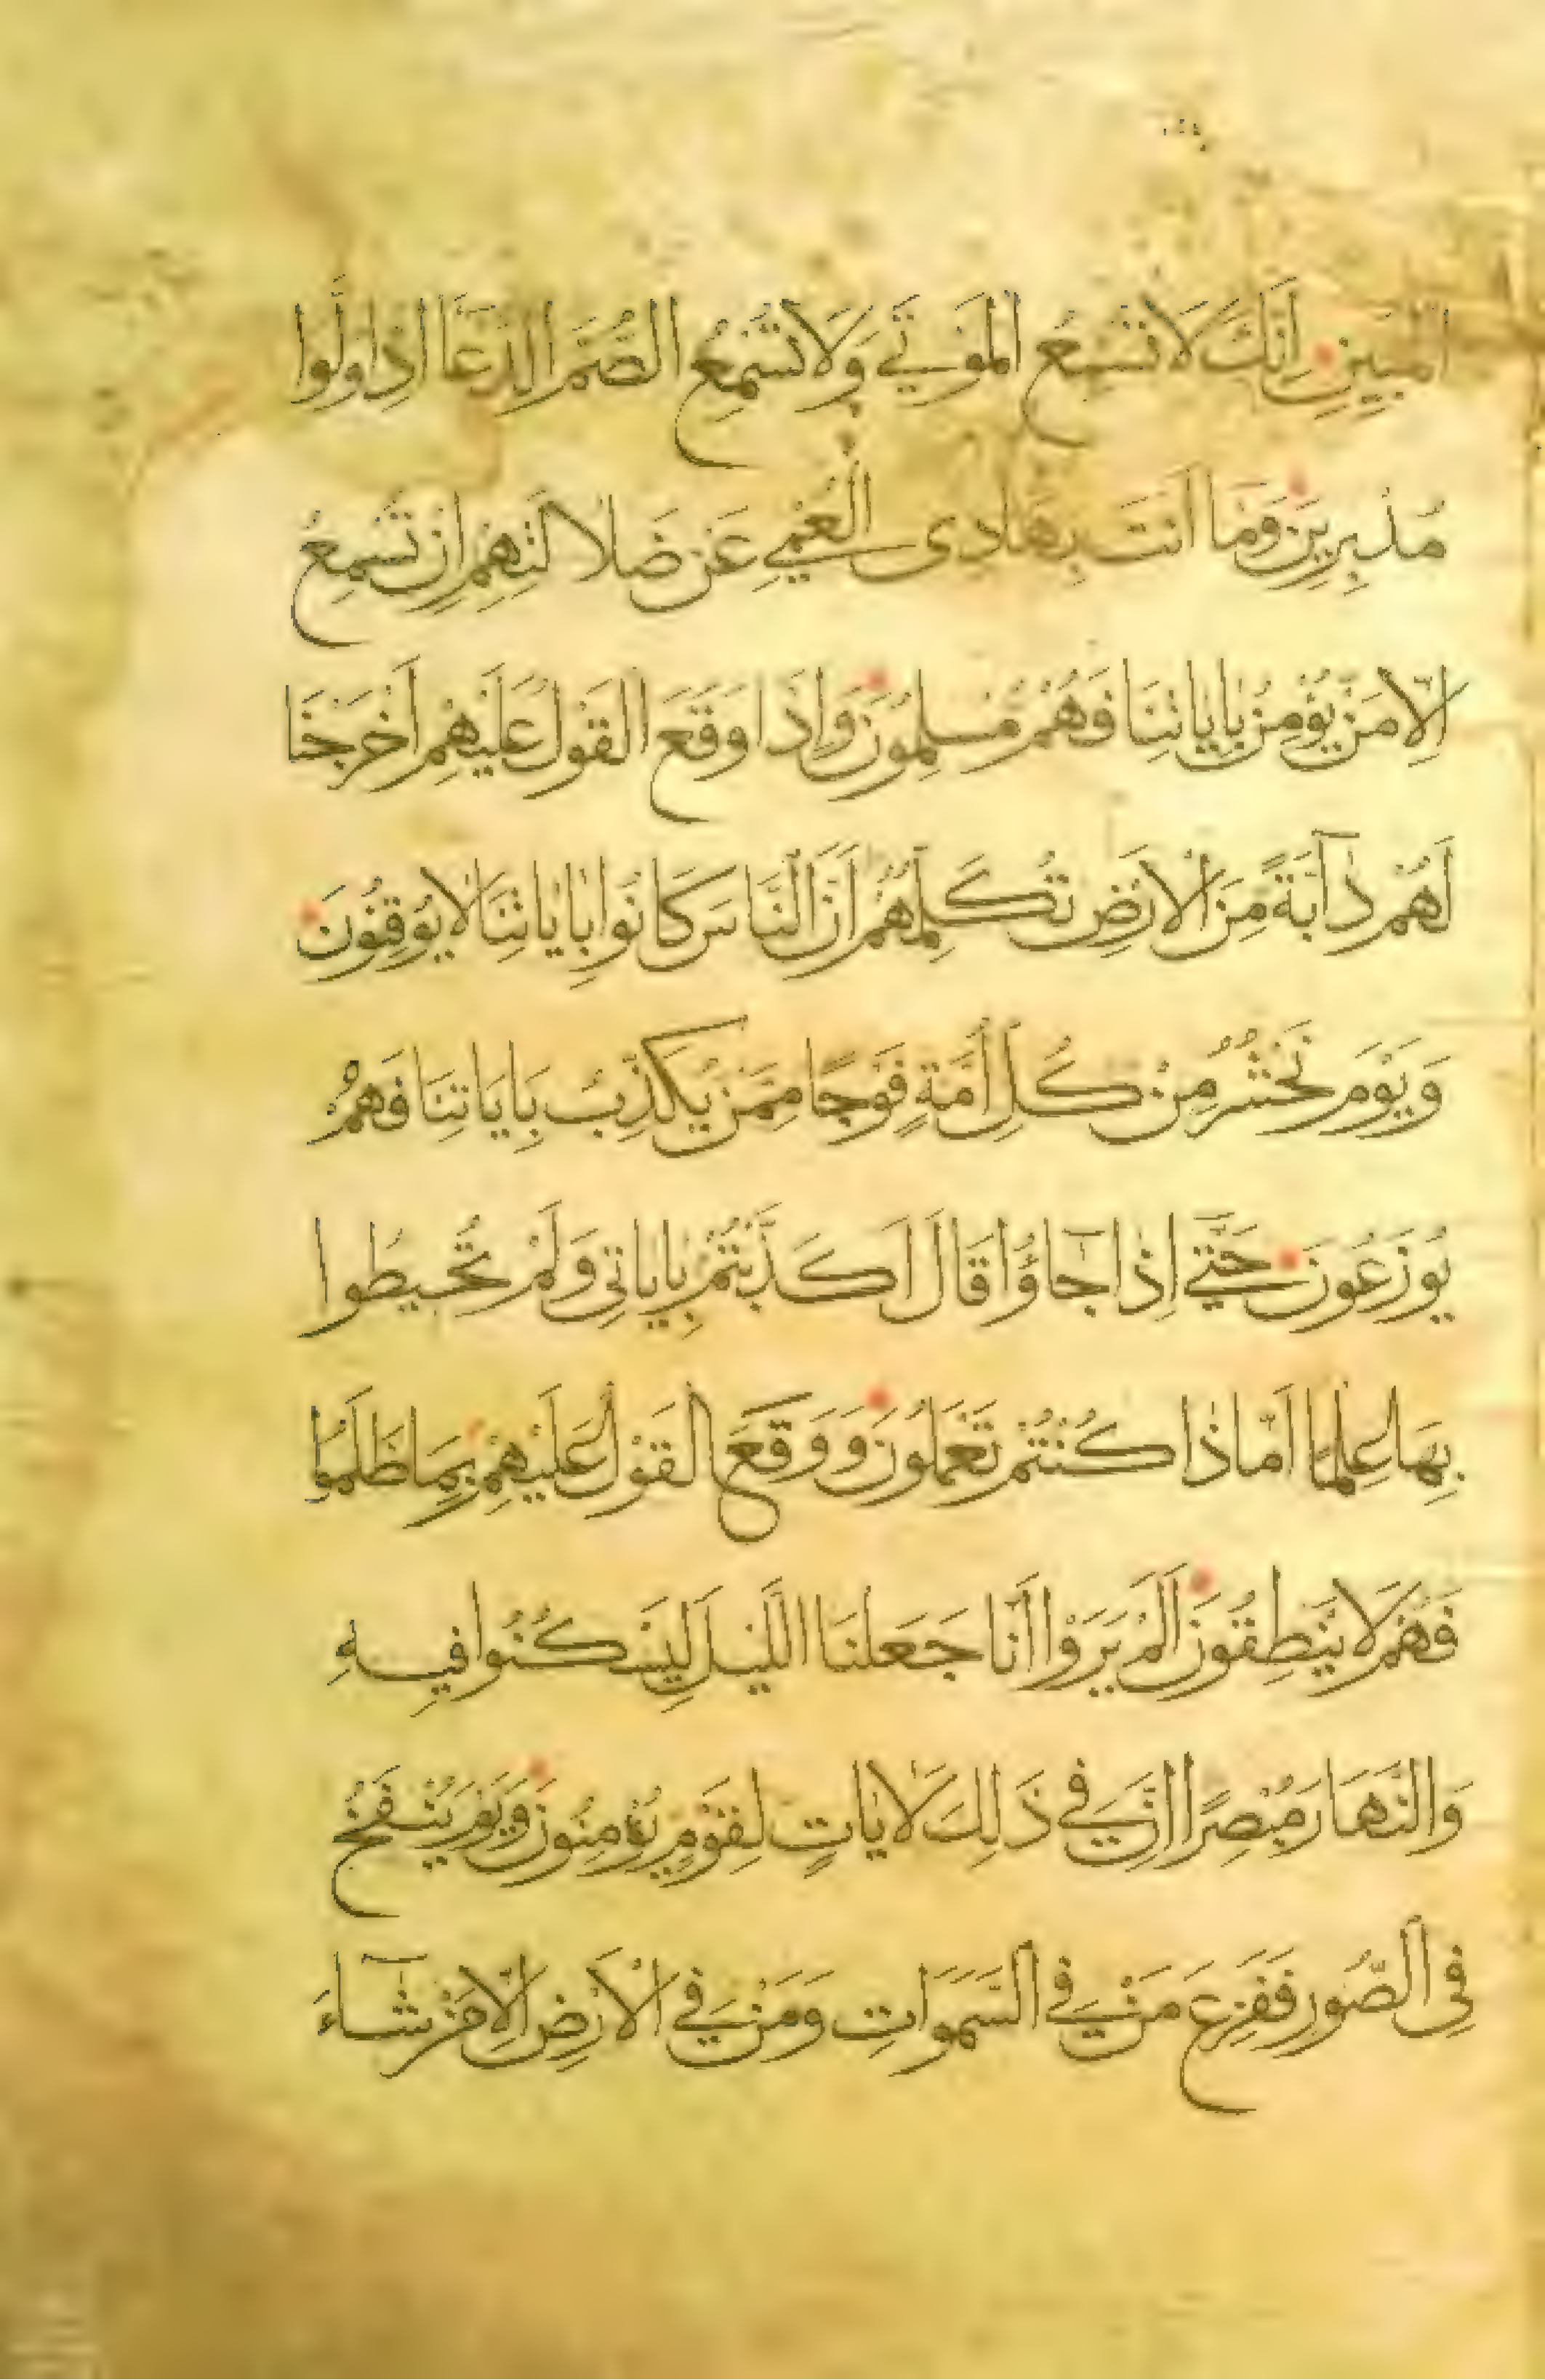 الْمُبِينِ اِنَّكَ لَا تُسْمِعُ الْمَوْتَىٰ وَلَا تُسْمِعُ الصُّمَّ الدُّعَآ اِذَا وَلَّوْا
مُدْبِرِينَ وَمَا اَنْتَ بِهَادِى الْعُمْيِ عَنْ ضَلَالَتِهِمْ اِنْ تُسْمِعُ
اِلَّا مَنْ يُؤْمِنُ بِاٰيَاتِنَا فَهُمْ مُسْلِمُونَ وَاِذَا وَقَعَ الْقَوْلُ عَلَيْهِمْ اَخْرَجْنَا
لَهُمْ دَآبَّةً مِنَ الْاَرْضِ تُكَلِّمُهُمْ اَنَّ النَّاسَ كَانُوا بِاٰيَاتِنَا لَا يُوقِنُونَ
وَيَوْمَ نَحْشُرُ مِنْ كُلِّ اُمَّةٍ فَوْجًا مِمَّنْ يُكَذِّبُ بِاٰيَاتِنَا فَهُمْ
يُوزَعُونَ حَتَّىٰ اِذَا جَاؤُا قَالَ اَكَذَّبْتُمْ بِاٰيَاتِى وَلَمْ تُحِيطُوا
بِهَا عِلْمًا اَمَّاذَا كُنْتُمْ تَعْمَلُونَ وَوَقَعَ الْقَوْلُ عَلَيْهِمْ بِمَا ظَلَمُوا
فَهُمْ لَا يَنْطِقُونَ اَلَمْ يَرَوْا اَنَّا جَعَلْنَا اللَّيْلَ لِيَسْكُنُوا فِيهِ
وَالنَّهَارَ مُبْصِرًا اِنَّ فِى ذَلِكَ لَاٰيَاتٍ لِقَوْمٍ يُؤْمِنُونَ وَيَوْمَ يُنْفَخُ
فِى الصُّورِ فَفَزِعَ مَنْ فِى السَّمَوَاتِ وَمَنْ فِى الْاَرْضِ اِلَّا مَنْ شَآءَ